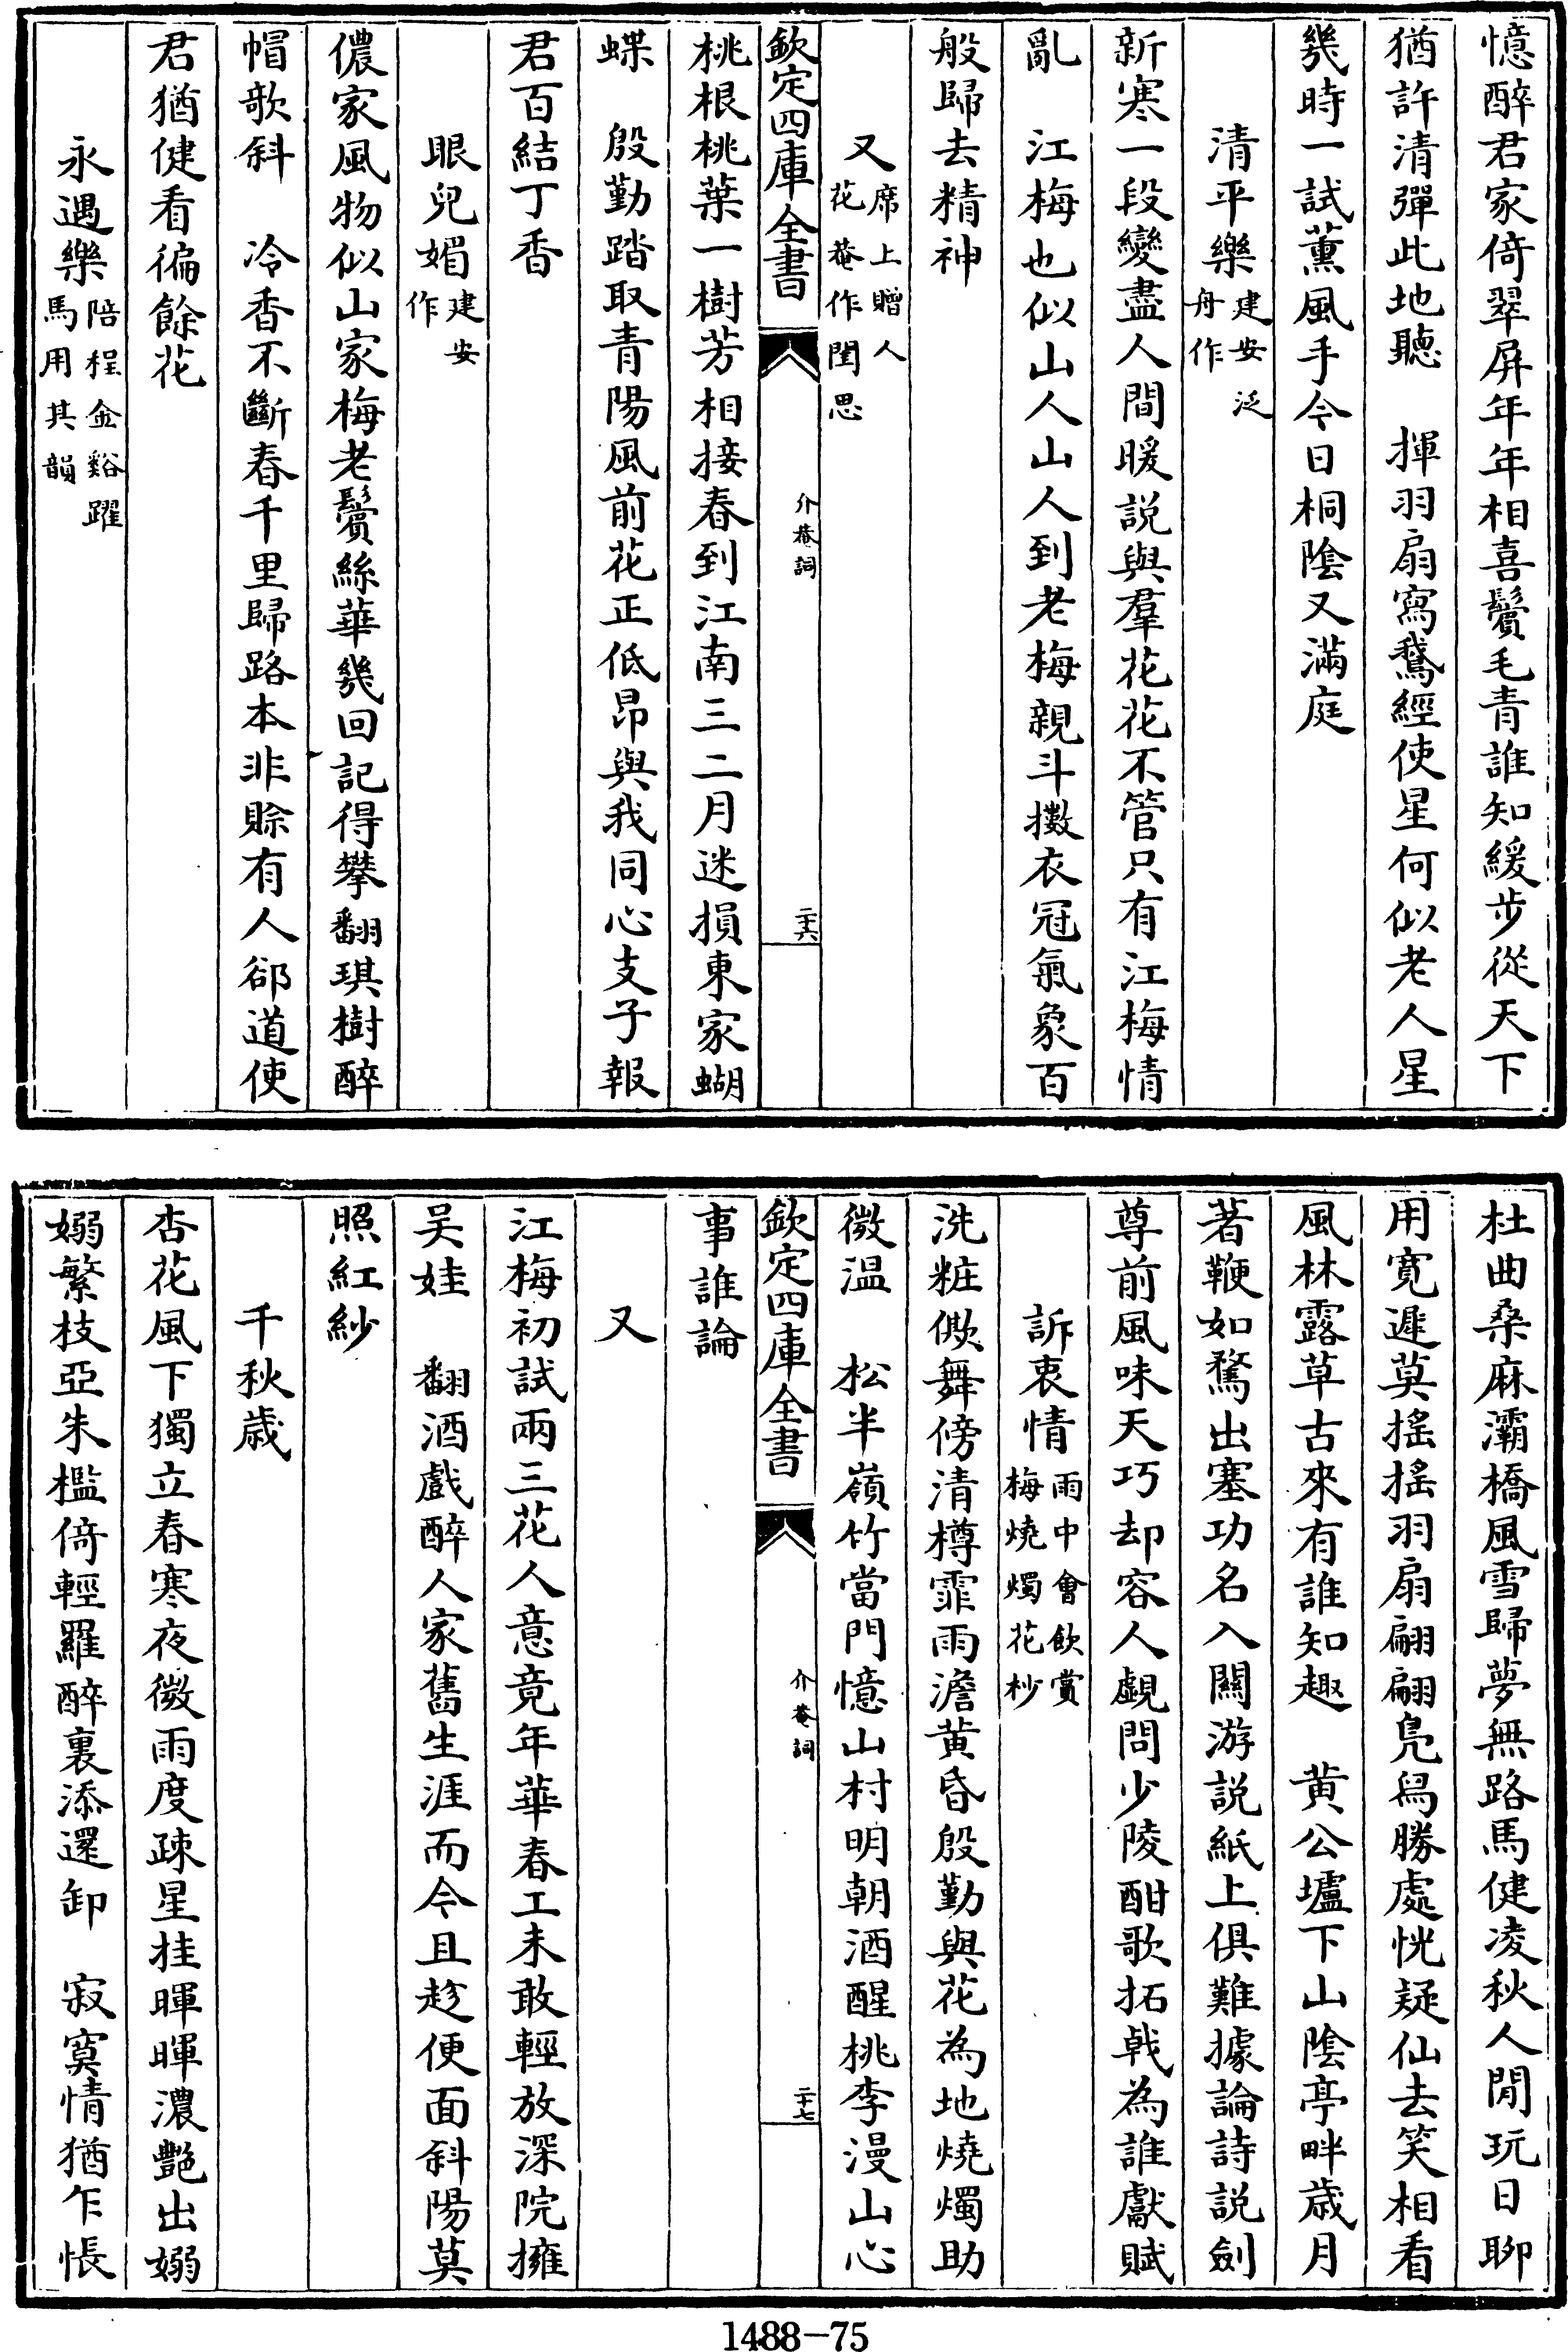 憶醉君家倚翠屏年年相喜鬢毛青誰知緩步從天下
猶許清彈此地聽　揮羽扇寫鵞經使星何似老人星
幾時一試薰風手今日桐陰又滿庭
清平樂建安泛舟作
新寒一段變盡人間暖説與羣花花不管只有江梅情
亂　江梅也似山人山人到老梅親斗擻衣冠氣象百
般歸去精神
又席上贈人花菴作閨思
欽定四庫全書
介菴詞
二十六
桃根桃葉一樹芳相接春到江南三二月迷損東家蝴
蝶　殷勤踏取青陽風前花正低昂與我同心支子報
君百結丁香
眼兒媚建安作
儂家風物似山家梅老鬢絲華幾回記得攀翻琪樹醉
帽歌斜　冷香不斷春千里歸路本非賒有人郤道使
君猶健看徧餘花
永遇樂陪程金谿躍馬用其韻
杜曲桑麻灞橋風雪歸夢無路馬健凌秋人閒玩日聊
用寛遲莫搖搖羽扇翩翩鳬舄勝處恍疑仙去笑相看
風林露草古來有誰知趣　黄公壚下山陰亭畔歳月
著鞭如騖出塞功名入關游説紙上俱難據論詩説劍
尊前風味天巧却容人覷問少陵酣歌拓㦸為誰獻賦
訴衷情雨中會飲賞梅燒燭花杪
洗粧僛舞傍清樽霏雨澹黄昏殷勤與花為地燒燭助
微温　松半嶺竹當門憶山村明朝酒醒桃李漫山心
欽定四庫全書
介菴詞
二十七
事誰論
又
江梅初試兩三花人意竟年華春工未敢輕放深院擁
吴娃　翻酒戲醉人家舊生涯而今且趁便面斜陽莫
照紅紗
千秋歳
杏花風下獨立春寒夜微雨度疎星挂暉暉濃艶出嫋
嫋繁枝亞朱檻倚輕羅醉裏添還卸　寂寞情猶乍悵
1488-75